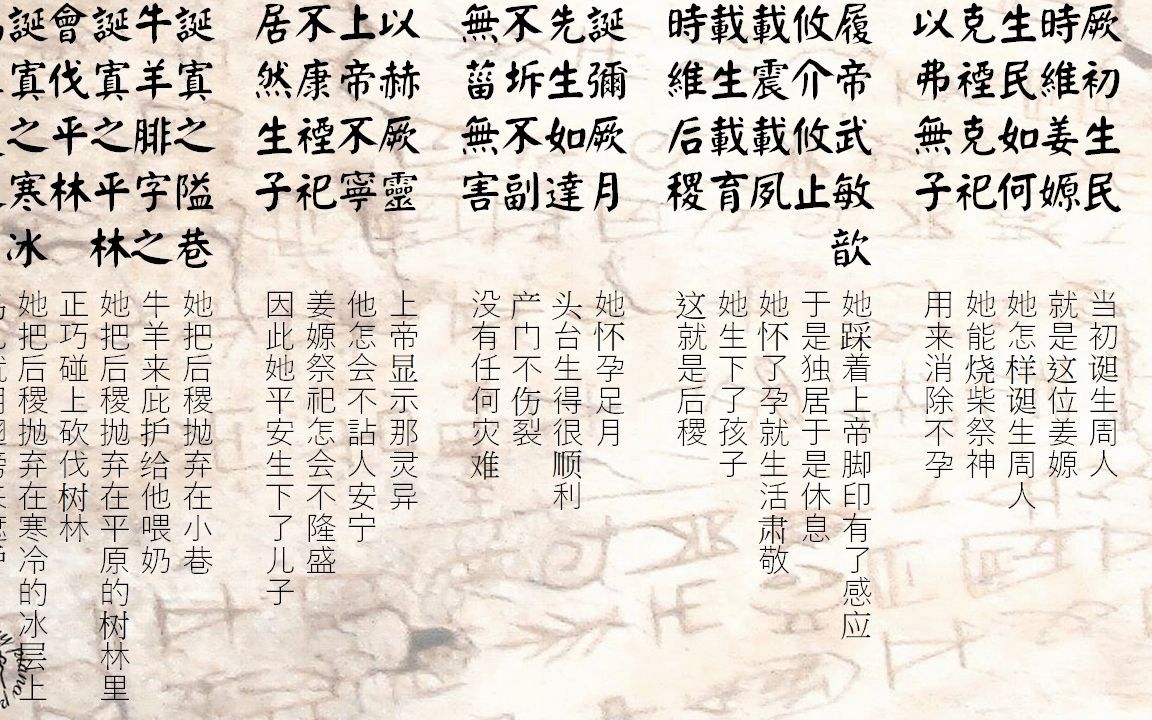 厥初生民
時維姜嫄
生民如何
克禋克祀
以弗無子
当初诞生周人
就是这位姜嫄
她怎样诞生周人
她能烧柴祭神
用来消除不孕
履帝武敏歆
攸介攸止
載震載夙
載生載育
時維后稷
她踩着上帝脚印有了感应
于是独居于是休息
她怀了孕就生活肃敬
她生下了孩子
这就是后稷
誕彌厥月
先生如達
不坼不副
無菑無害
她怀孕足月
头台生得很顺利
产门不伤裂
没有任何灾难
以赫厥靈
上帝不寧
不康禋祀
居然生子
上帝显示那灵异
他怎会不詀人安宁
姜嫄祭祀怎会不隆盛
因此她平安生下了儿子
誕寘之隘巷
牛羊腓字之
誕寘之平林
會伐平林
誕寘之寒冰
她把后稷抛弃在小巷
牛羊来庇护给他喂奶
她把后稷抛弃在平原的树林里
正巧碰上砍伐树林
她把后稷抛弃在寒冷的冰层上
piano